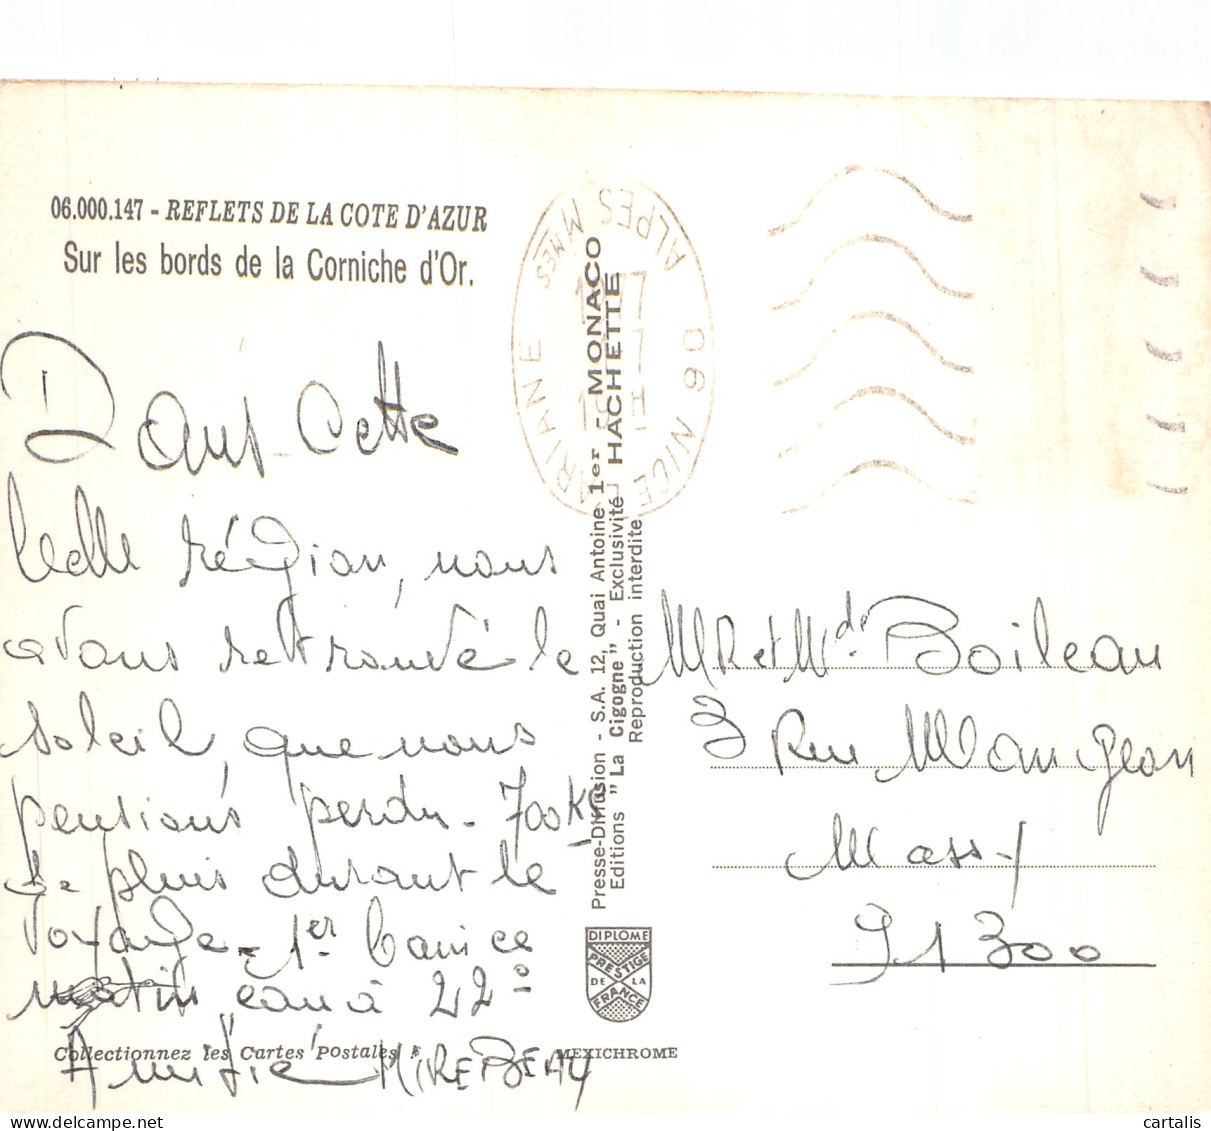 06.000.147 - REFLETS DE LA COTE D'AZUR
Sur les bords de la Corniche d'Or.
Dans Cette
belle région, nous
avons retrouvé le
soleil que nous
pensions perdu. 700 Km
de pluie durant le
voyage. 1er bain ce
matin eau à 22°
Amitié MIREBEAU
Collectionnez les Cartes Postales !
MEXICHROME
06 NICE ARIANE
ALPES MMES
Presse-Diffusion - S.A. 12, Quai Antoine 1er - MONACO
Editions "La Cigogne" - Exclusivité HACHETTE
Reproduction interdite
DIPLOME
PRESTIGE
DE LA
FRANCE
MR et Mde Boileau
3 Rue Maugeon
Massy
91300
cartalis